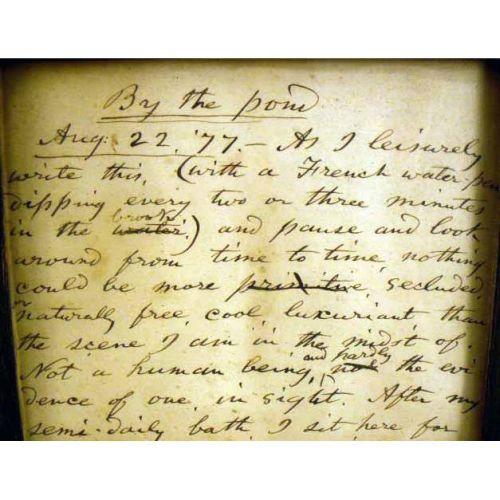 By the pond
Aug: 22. '77. – As I leisurely
write this, (with a French water-pen
dipping every two or three minutes
brook
in the water.) and pause and look
around from time to time nothing
could be more primitive, secluded,
or naturally free, cool luxuriant than
the scene I am in the midst of.
and hardly
Not a human being, not the evi
dence of one in sight. After my
semi-daily bath I sit here for